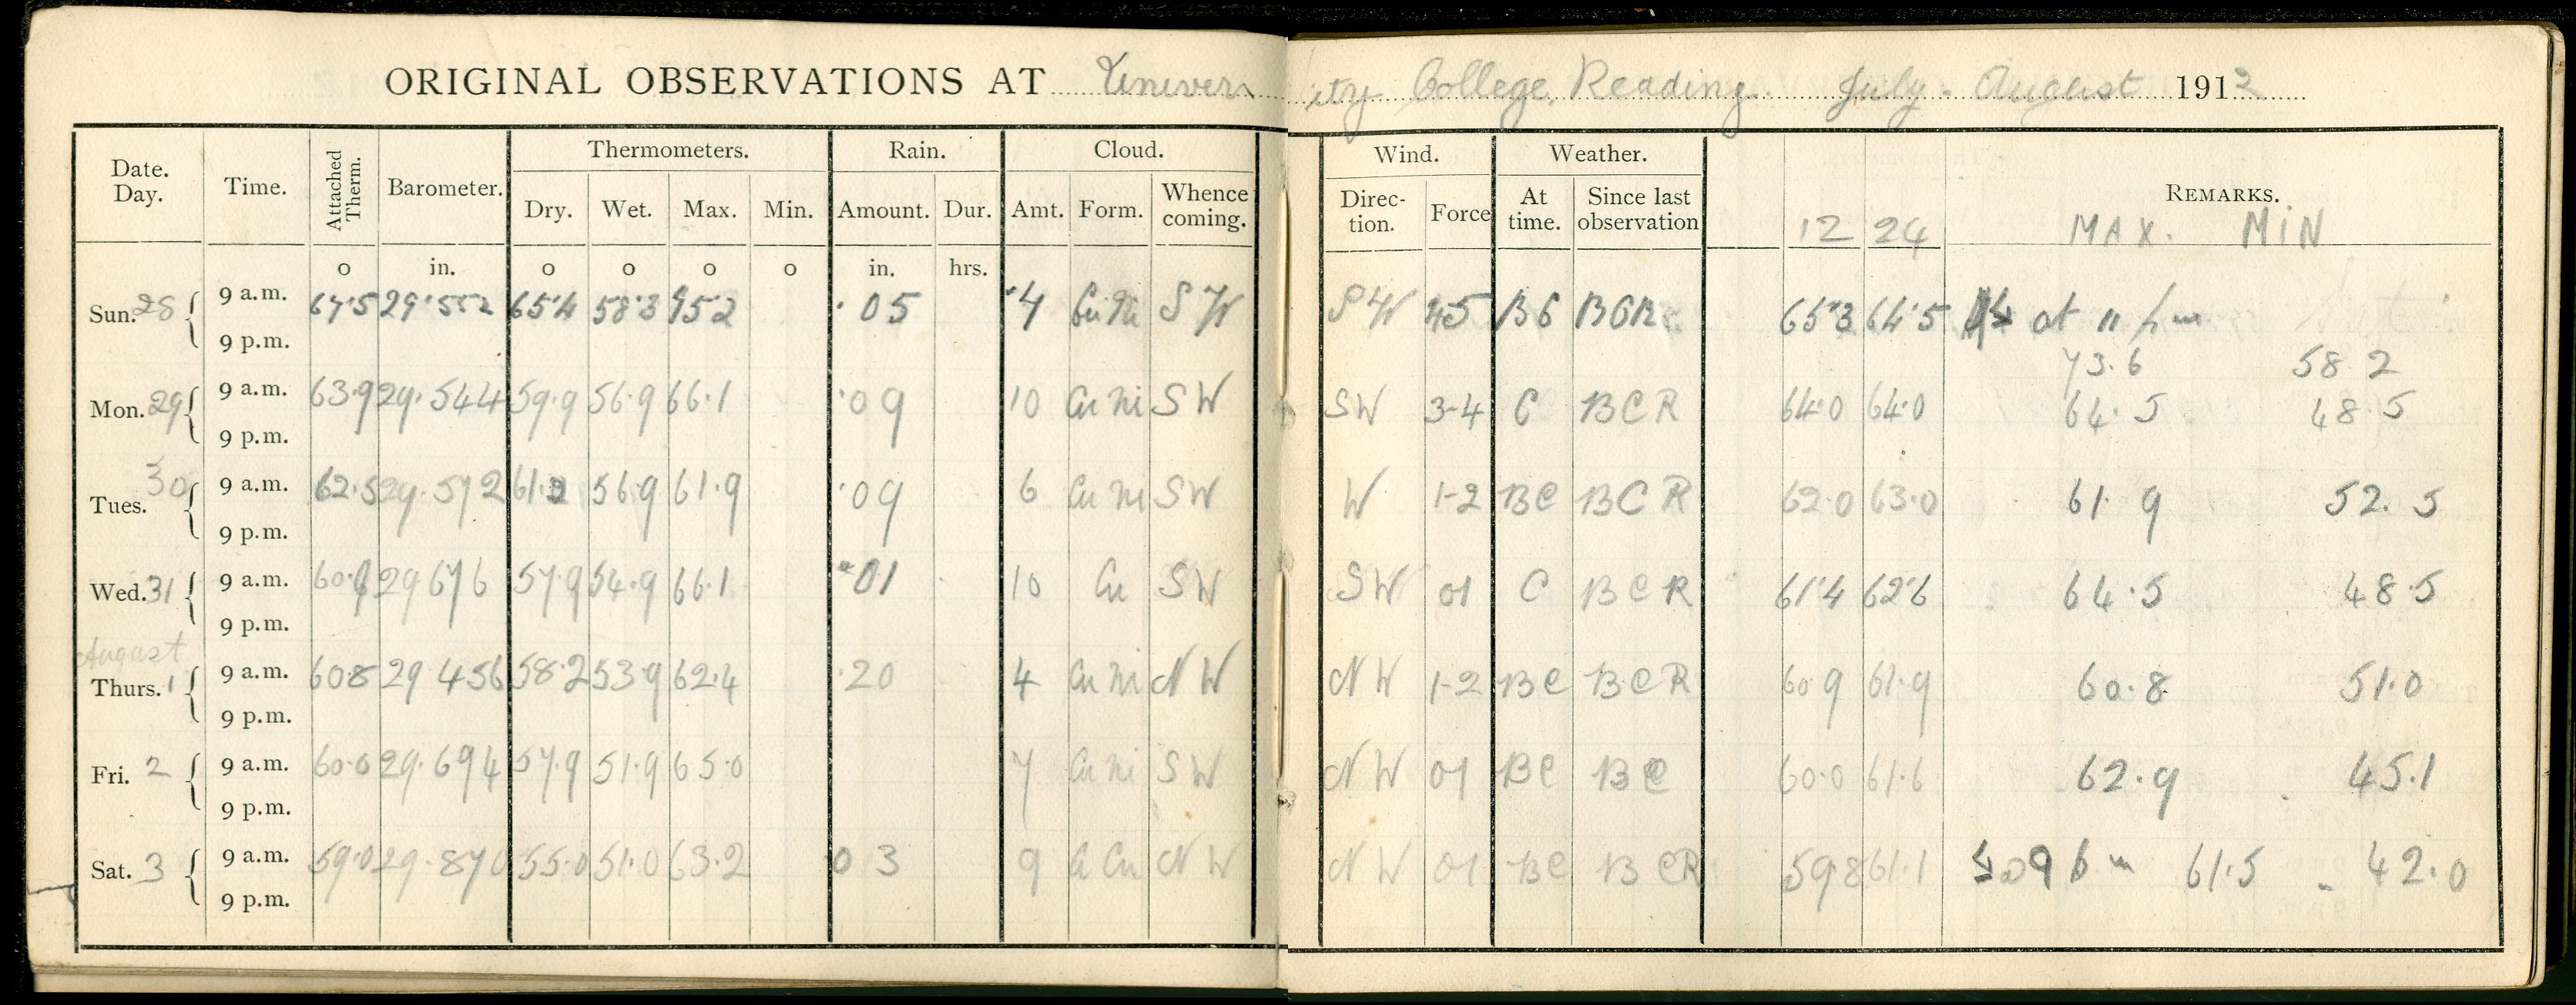 ORIGINAL OBSERVATIONS AT University College, Reading. July - August 1912
Date. Day. Time. Attached Therm. Barometer. Thermometers. Rain. Cloud. Wind. Weather. REMARKS.
Dry. Wet. Max. Min. Amount. Dur. Amt. Form. Whence coming. Direction. Force At time. Since last observation 12 24 MAX. MIN
o in. o o o o in. hrs.
Sun. 28 9 a.m. 67.5 29.552 65.4 58.3 75.2 .05 4 Cu Ni SW SW 45 BC BCR 65.3 64.5 at 11 pm
9 p.m. 73.6 58 2
Mon. 29 9 a.m. 63.9 29.544 59.9 56.9 66.1 .09 10 Cu Ni SW SW 3-4 C BCR 64.0 64.0 64.5 48.5
9 p.m.
Tues. 30 9 a.m. 62.5 29.572 61.2 56.9 61.9 .09 6 Cu Ni SW W 1-2 BC BCR 62.0 63.0 61.9 52.5
9 p.m.
Wed. 31 9 a.m. 29 676 57.9 54.9 66.1 .01 10 Cu SW SW 01 C BCR 61.4 62.6 64.5 48.5
9 p.m.
August
Thurs. 1 9 a.m. 608 29 456 58.2 53.9 62.4 .20 4 Cu Ni NW NW 1-2 BC BCR 60 9 61.9 60.8 51.0
9 p.m.
Fri. 2 9 a.m. 60.0 29.694 57.9 51.9 65.0 7 Cu Ni SW NW 01 BC BC 60.0 61.6 62.9 45.1
9 p.m.
Sat. 3 9 a.m. 59.0 29.870 55.0 51.0 63.2 03 9 Cu NW NW 01 BC BCR 59.8 61.1 61.5 42.0
9 p.m.